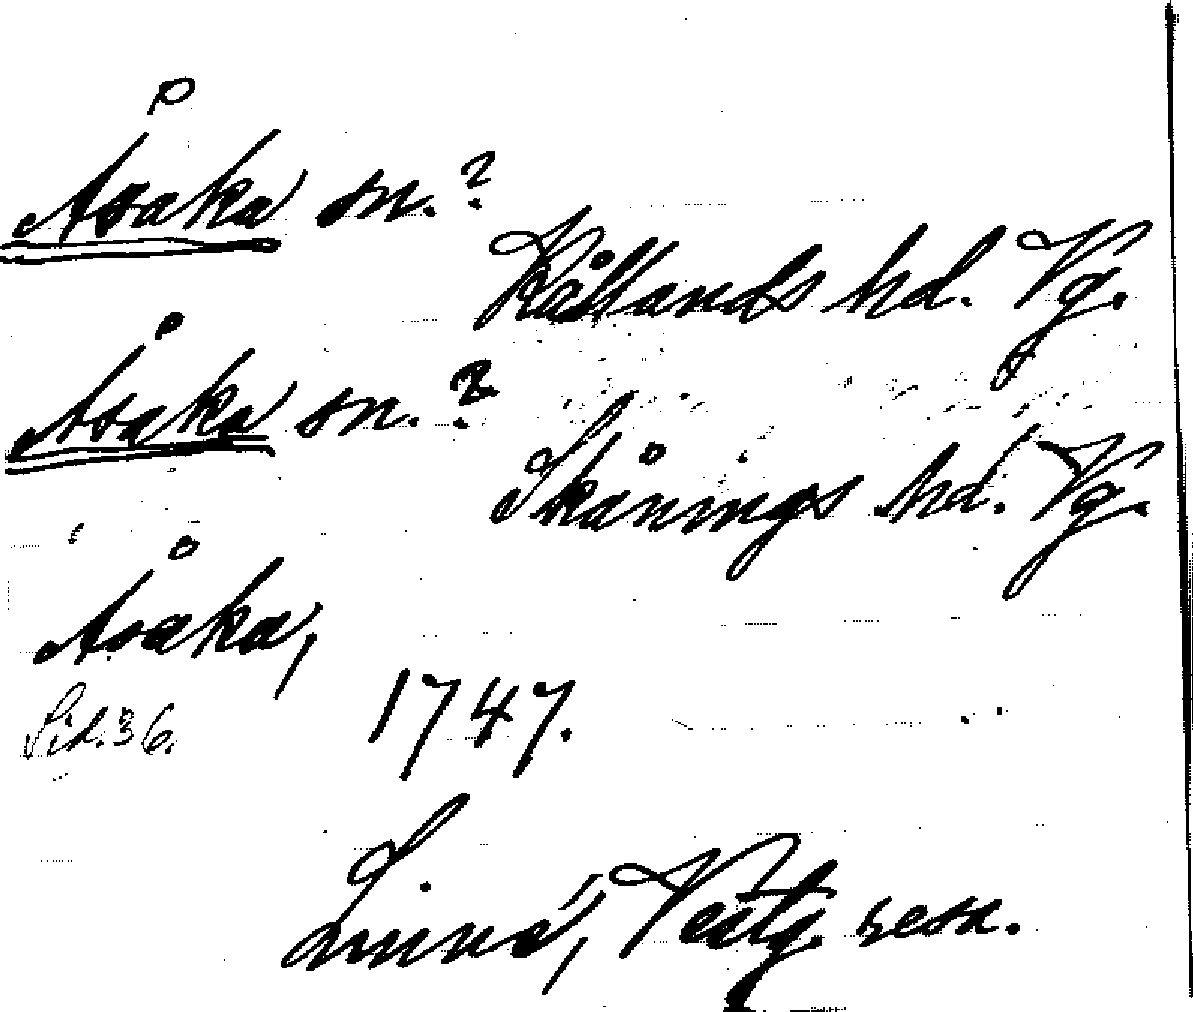 Åsaka sn.?
Kållands hd. Vg.
Åsaka sn.?
Skånings hd. Vg.
Åsaka,
1747.
Sid. 36.
Linné, Vestg. resa.